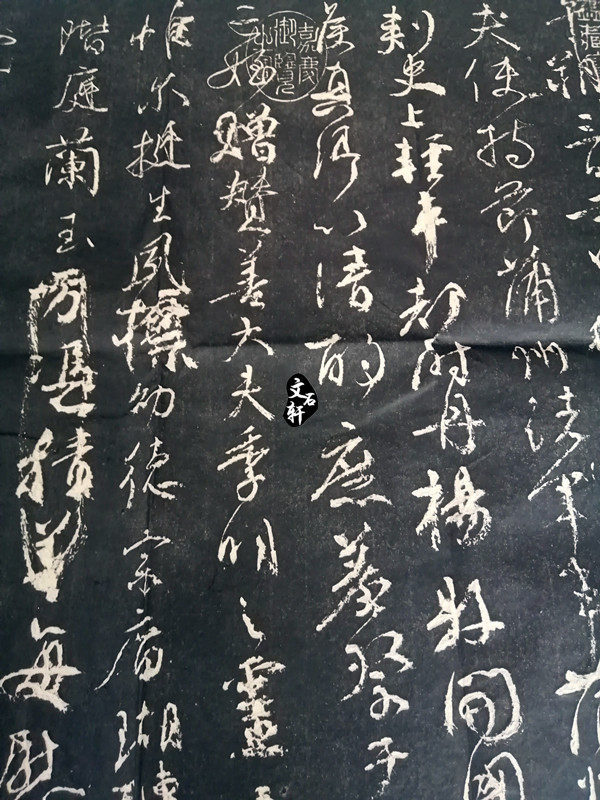 夫使持節蒲州諸軍事蒲州
刺史上輕車都尉丹楊縣開國
侯真卿以清酌庶羞祭于
亡姪贈贊善大夫季明之靈
惟爾挺生夙標幼德宗廟瑚璉
階庭蘭玉方憑積善每慰
嘉慶御覽
文石轩